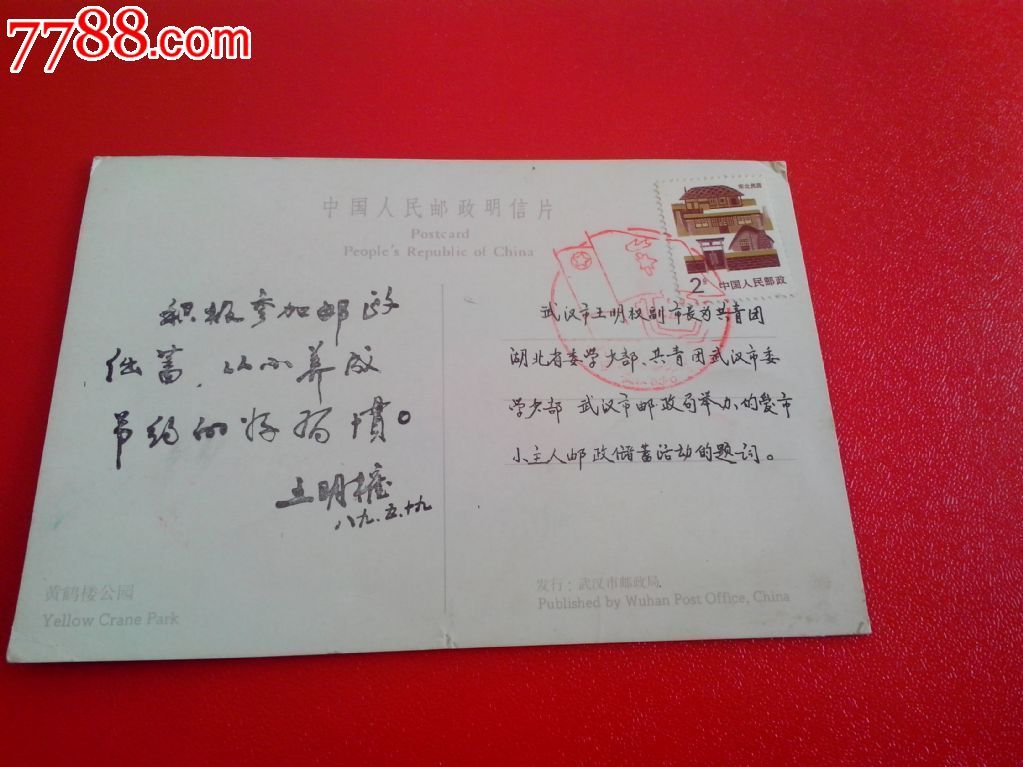 7788.com
中国人民邮政明信片
Postcard
People's Republic of China
东北民居
2分
中国人民邮政
积极参加邮政
储蓄，从小养成
节约的好习惯。
王明权
八九.五.十九
武汉市王明权副市长为共青团
湖北省委学少部、共青团武汉市委
学少部 武汉市邮政局举办的爱市
小主人邮政储蓄活动的题词。
黄鹤楼公园
Yellow Crane Park
发行：武汉市邮政局
Published by Wuhan Post Office, China